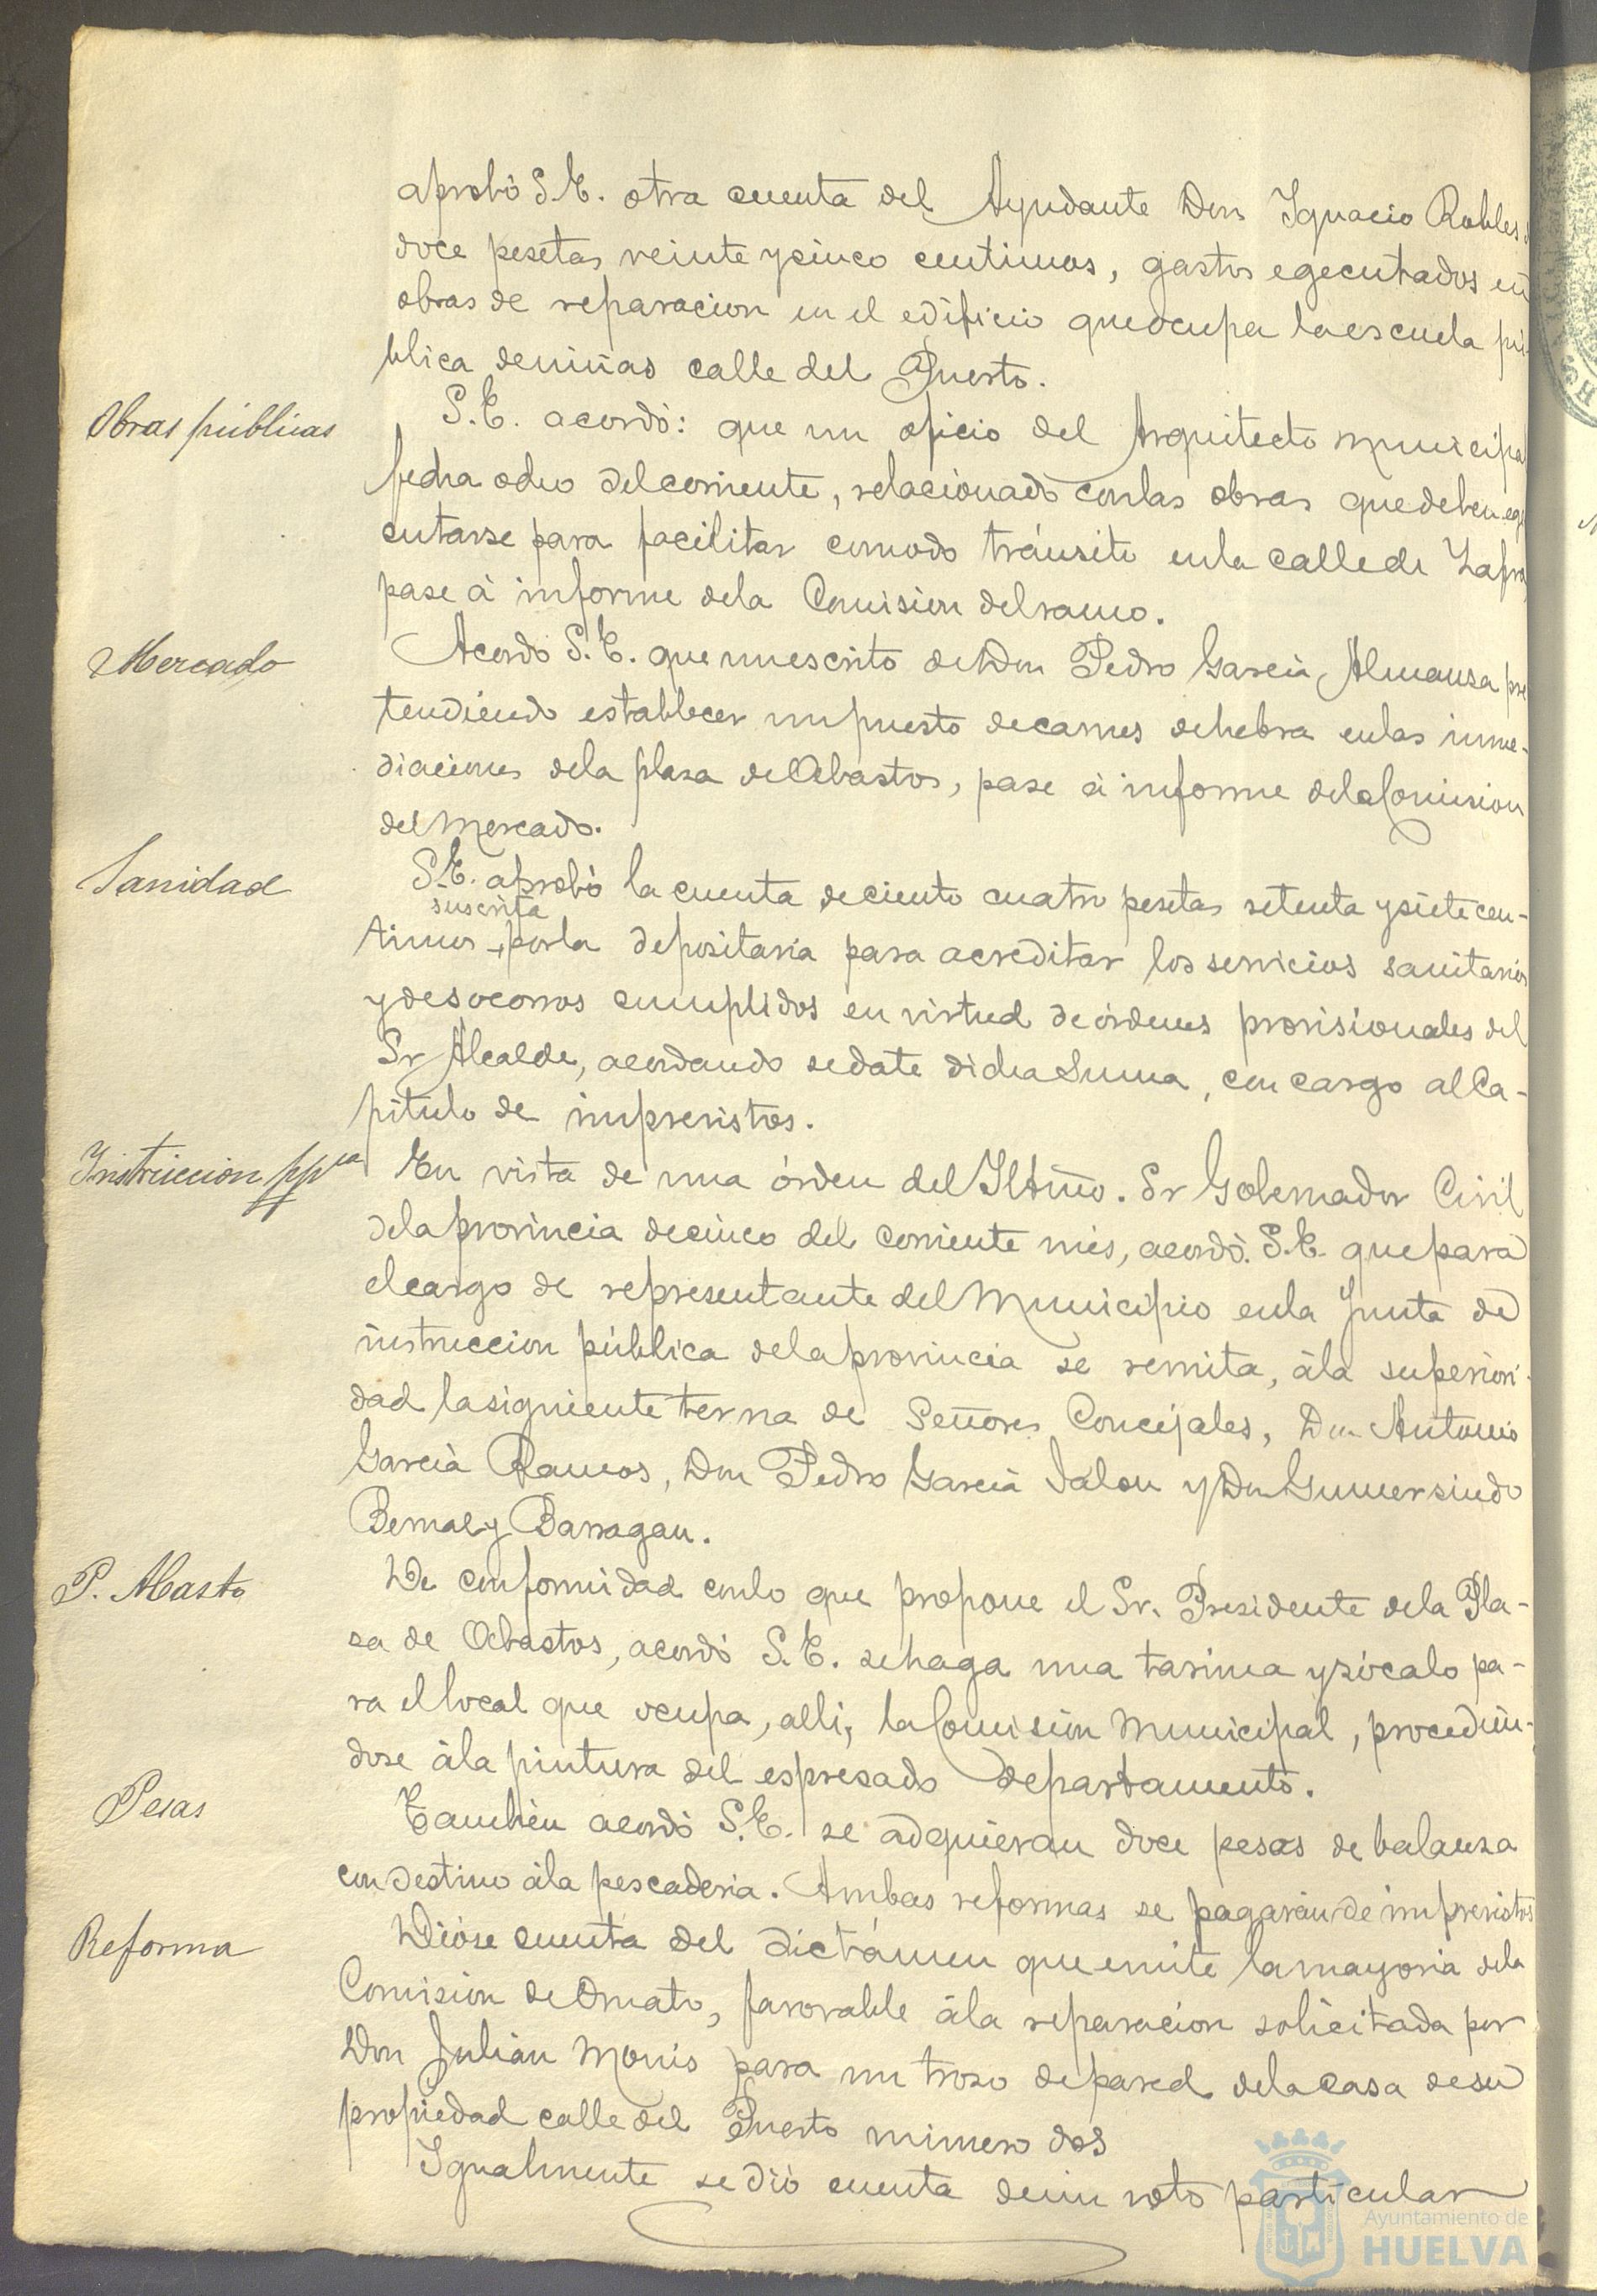 aprobó S.E. otra cuenta del Ayudante Don Ygnacio Robles de
doce pesetas veinte y cinco centimos, gastos egecutados en
obras de reparacion en el edificio que ocupa la escuela pú-
blica de niñas calle del Puerto.
Obras públicas
S.E. acordó: que un oficio del Arquitecto municipal
fecha ocho del corriente, relacionado con las obras que deben ege
cutarse para facilitar comodo tránsito en la calle de Zafra,
pase á informe de la Comision del ramo.
Mercado
Acordó S.E. que un escrito de Don Pedro Garcia Almansa pre
tendiendo establecer un puesto de carnes de hebra en las inme-
diaciones de la plaza de Abastos, pase á informe de la Comision
del Mercado.
Sanidad
S.E. aprobó la cuenta de ciento cuatro pesetas setenta y siete cen-
suscrita
timos por la depositaria para acreditar los servicios sanitarios
y de socorros cumplidos en virtud de órdenes provisionales del
Sr Alcalde, acordando se date dicha suma, con cargo al Ca-
pitulo de imprevistos.
Instruccion ppca
En vista de una órden del Iltmo. Sr Gobernador Civil
de la provincia de cinco del corriente mes, acordó S.E. que para
el cargo de representante del Municipio en la Junta de
instruccion pública de la provincia se remita, á la superiori-
dad la siguiente terna de Señores Concejales, Don Antonio
Garcia Ramos, Don Pedro Garcia Jalon y Don Gumersindo
Bernal y Barragan.
P. Abasto
De conformidad con lo que propone el Sr. Presidente de la Pla-
za de Abastos, acordó S.E. se haga una tarima y zócalo pa-
ra el local que ocupa, alli, la Comision Municipal, procedién-
dose á la pintura del espresado departamento.
Pesas
Tambien acordó S.E. se adquieran doce pesas de balanza
con destino á la pescaderia. Ambas reformas se pagarán de imprevistos
Reforma
Dióse cuenta del dictámen que emite la mayoria de la
Comision de Ornato, favorable á la reparacion solicitada por
Don Julian Monis para un trozo de pared de la casa de su
propiedad calle del Puerto número dos
Igualmente se dió cuenta de un voto particular
Ayuntamiento de
HUELVA